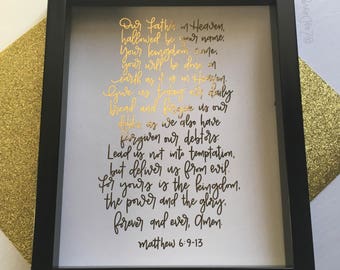 Our Father in Heaven,
hallowed be your name,
Your kingdom come,
your will be done, on
earth as it is in Heaven.
Give us today our daily
bread and forgive us our
debts, as we also have
forgiven our debtors.
Lead us not into temptation,
but deliver us from evil.
For yours is the kingdom,
the power and the glory,
forever and ever, Amen.
matthew 6:9-13